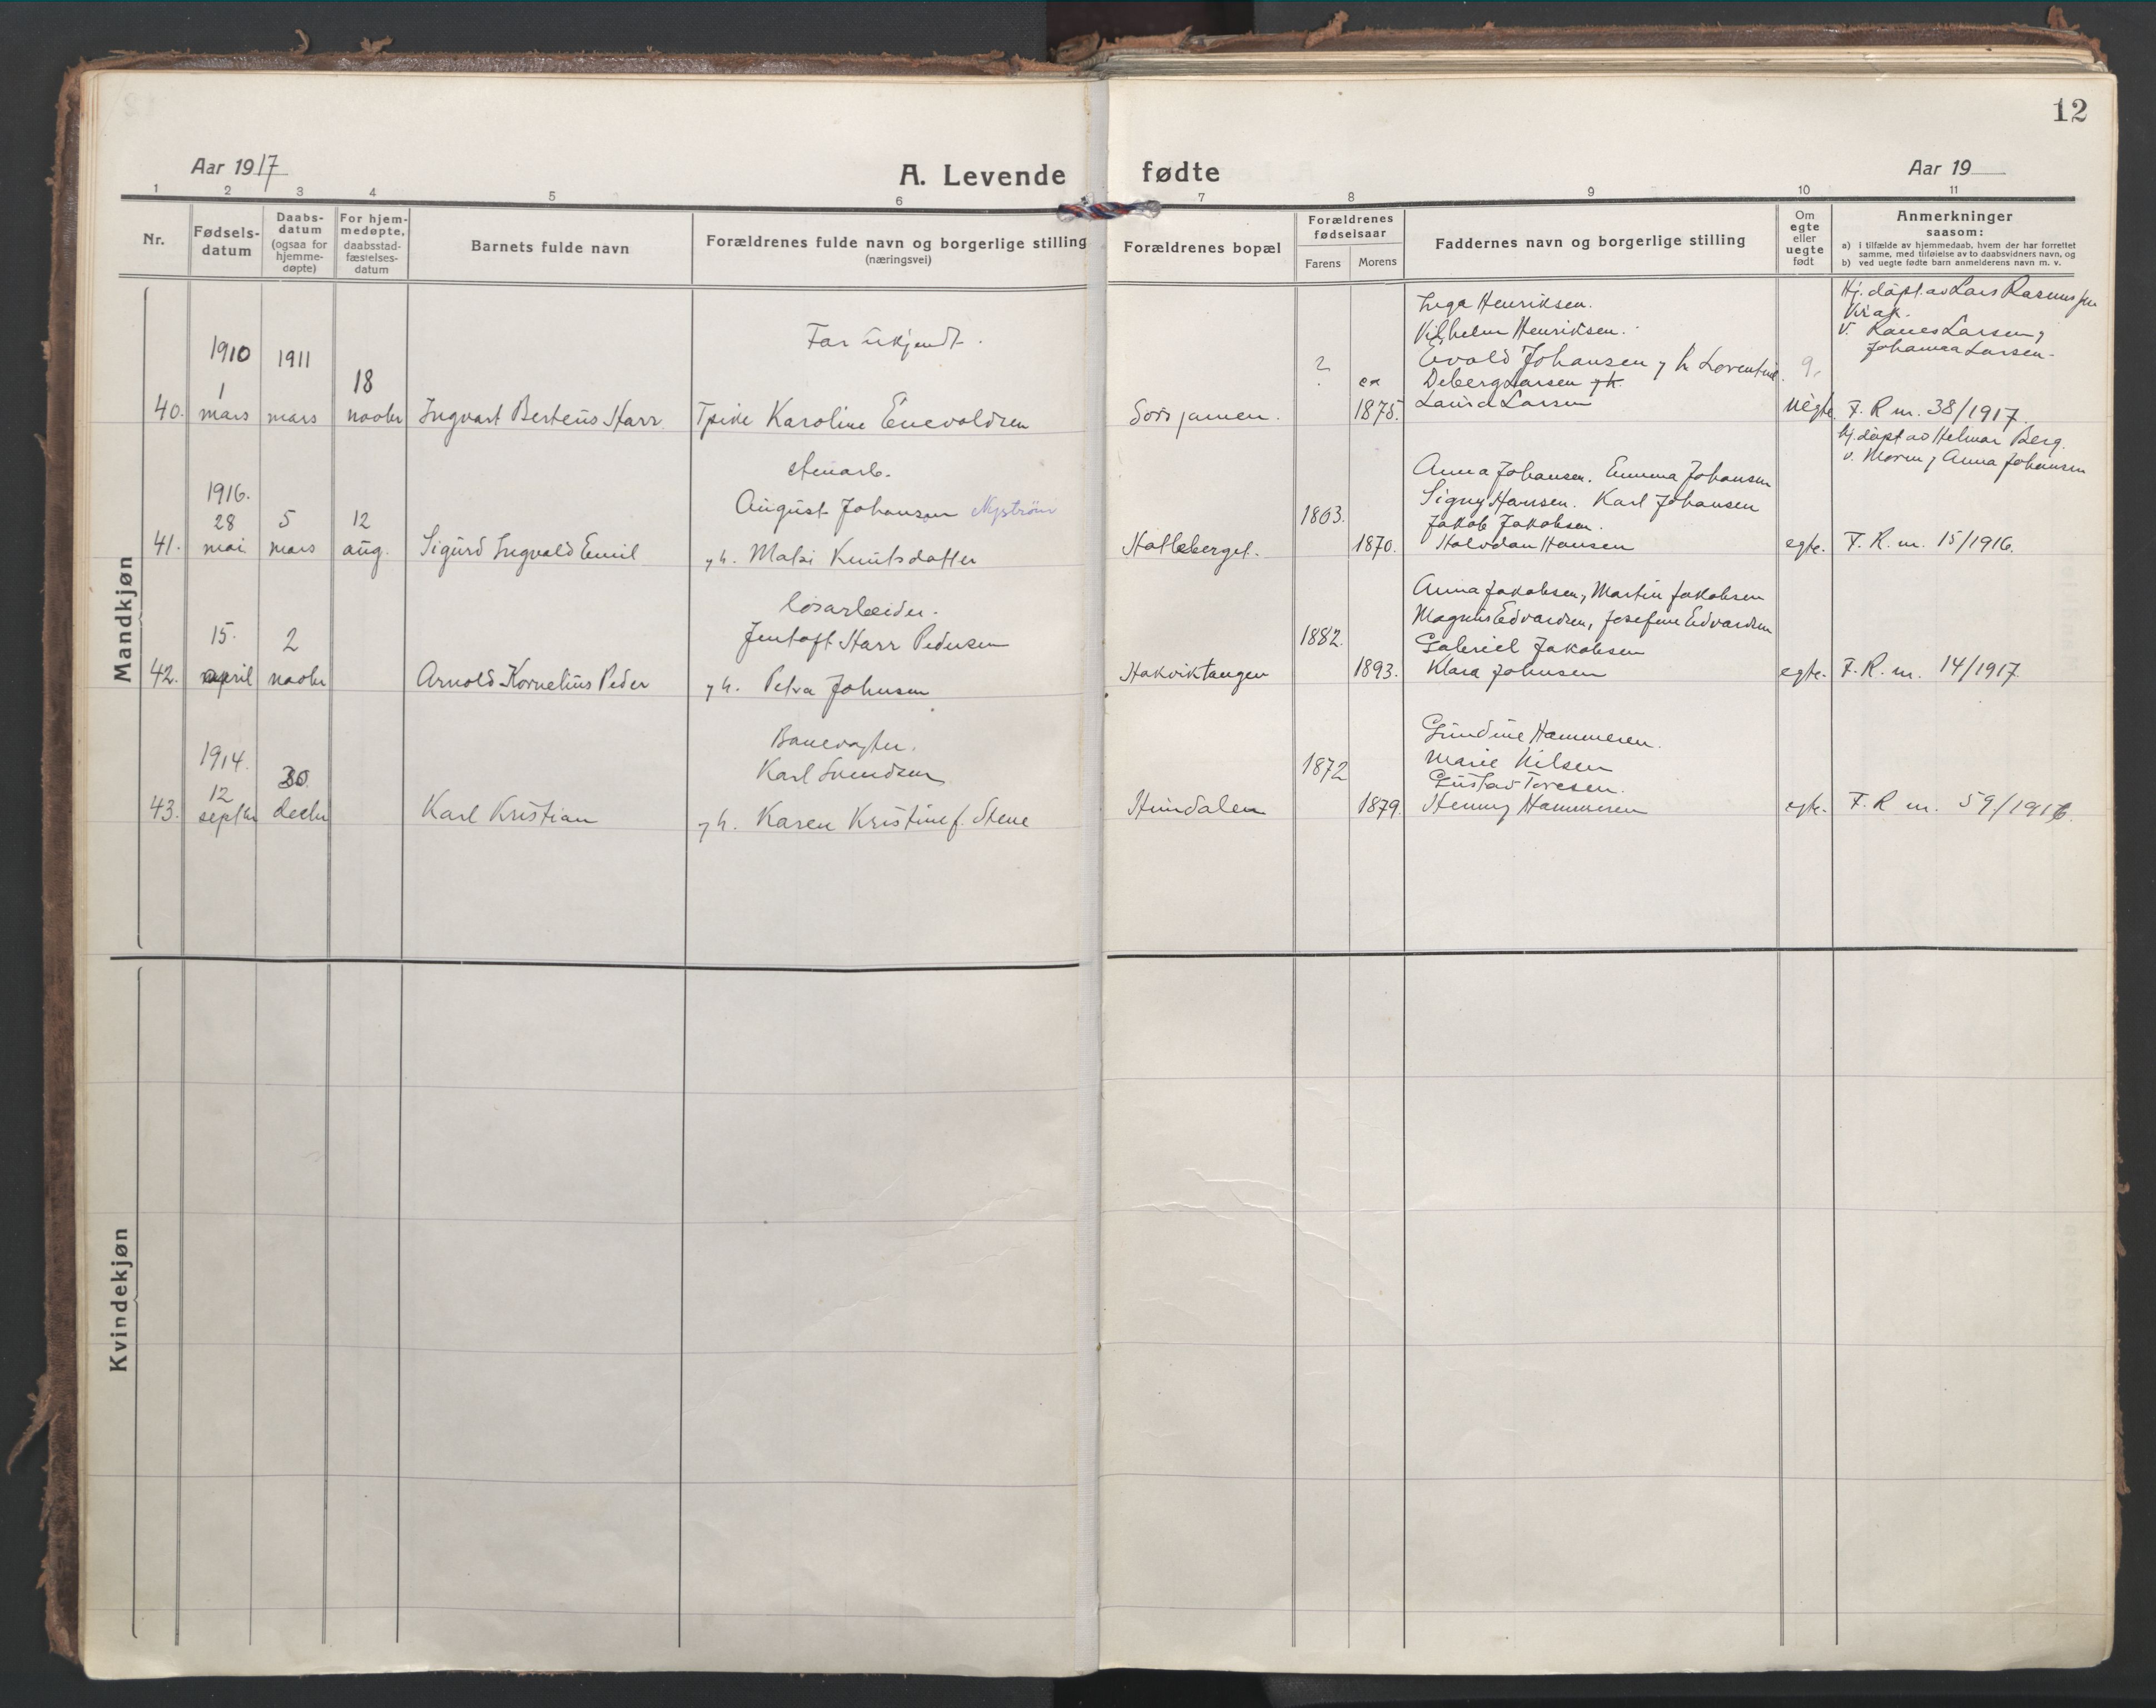 12
Aar 1917
A. Levende fødte
Aar 19
1 2 3 4 5 6 7 8 9 10 11
Nr.
Fødsels-
datum
Daabs-
datum
(ogsaa for
hjemme-
døpte)
For hjem-
medøpte,
daabsstad-
fæstelses-
datum
Barnets fulde navn
Forældrenes fulde navn og borgerlige stilling
(næringsvei)
Forældrenes bopæl
Forældrenes
fødselsaar
Farens Morens
Faddernes navn og borgerlige stilling
Om
egte
eller
uegte
født
Anmerkninger
saasom:
a) i tilfælde av hjemmedaab, hvem der har forrettet
samme, med tilføielse av to daabsvidners navn, og
b) ved uegte fødte barn anmelderens navn m. v.
Mandkjøn
40.
1910
1
mars
1911
mars
18
novbr
Ingvart Berteus Harr
Far ukjendt.
Pike Karoline Enevoldsen
?
ca
1875.
Inga Henriksen.
Vilhelm Henriksen.
Evald Johansen og h. Lorentine
Deberg Larsen og h.
Laura Larsen
Uegte
Hj. døpt av Lars Rasmussen
V. Ranes Larsen og
Johanna Larsen.
F. R. m. 38/1917.
41.
1916.
28
mai
5
mars
12
aug.
Sigurd Ingvald Emil
Stenarb.
August Johanson Nyström
og h. Matsi Knutsdatter
Halleberget.
1863.
1870.
Anna Johansen. Emma Johansen
Signy Hansen. Karl Johansen
Jakob Jakobsen.
Halvdan Hansen
egte.
hj. døpt av Helmar Berg.
v. Moren og Anna Johansen
F. R. m. 15/1916.
42.
15.
april
2
novbr
Arnold Kornelius Peder
løsarbeider.
Jentoft Harr Pedersen
og h. Petra Johnsen
Hakviktangen
1882.
1893.
Anna Jakobsen, Martin Jakobsen
Magnus Edvardsen, Josefine Edvardsen
Gabriel Jakobsen
Klara Johnsen
egte.
F. R. m. 14/1917.
43.
1914.
12
septbr
30.
decbr
Karl Kristian
Banevogter.
Karl Svendsen
og h. Karen Kristine f. Stene
Hundalen
1872
1879.
Gundine Hammeren.
Marie Nilsen
Gustav Toresen.
Henny Hammeren
egte.
F. R. m. 59/1916.
Kvindekjøn